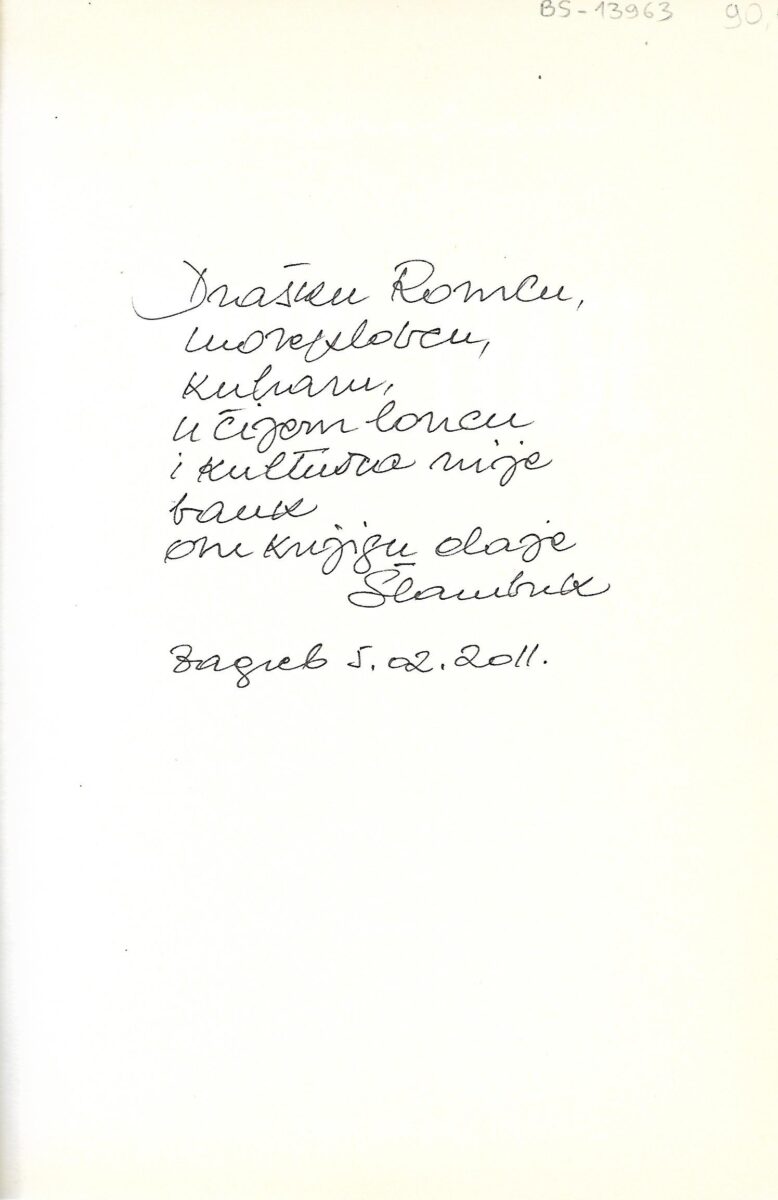 BS-13963 90,
Drašku Romcu,
moreplovcu,
kuharu,
u čijem loncu
i kultura nije
bauk
ovu knjigu daje
Štambuk
Zagreb 5.02.2011.